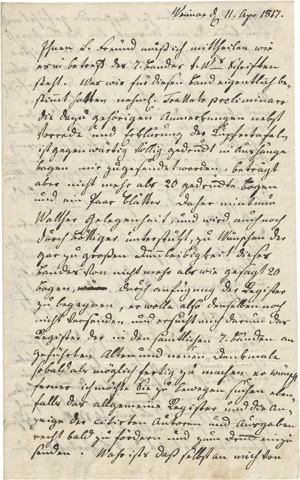 Weimar d 11. Apr 1817.
Ihnen L. Freund muß ich mittheilen wie
es in betreff des 7. bandes v. W. Schriften
steht. Was wir für diesen band eigentlich be-
stimt hatten nehml. Trattato preliminare
die dazu gehörigen Anmerkungen nebst
Vorrede und Erklärung der Kupfertafeln,
ist gegenwärtig völlig gedruckt in Aushänge
bogen mir zugesendet worden, beträgt
aber nicht mehr als 20 gedruckte bogen
und ein Paar blätter. Daher nimt nun
Walther Gelegenheit, und wird auch noch
durch Böttiger unterstützt, zu Wünschen der
gar zu großen Dünnleibigkeit dieses
bandes von nicht mehr als wie gesagt 20
bogen, durch anfügung der Register
zu begegnen, er wolle also denselben noch
nicht versenden und ersucht mich darum das
Register der in den sämtlichen 7. bänden an
geführten Alten und neuen Denkmale
sobald als möglich fertig zu machen, er wünscht
ferner ich möchte Sie zu bewegen suchen eben
falls das allgemeine Register und die An-
zeige der citirten Autoren und Ausgaben
recht bald zu fördern und zum Druck einzu
senden. Wahr ists daß selbst an mich von